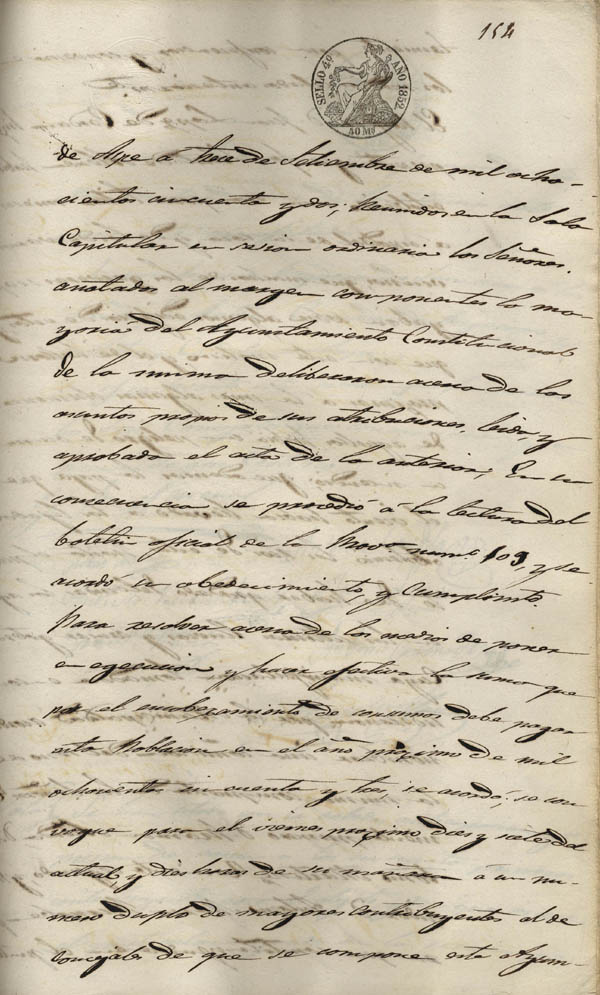 154
SELLO 4º AÑO 1852
40 Ms
de Aspe a trece de Setiembre de mil ocho-
cientos cincuenta y dos; Reunidos en la Sala
Capitular en sesion ordinaria los Señores.
anotados al margen componentes la ma-
yoria del Ayuntamiento Constitucional
de la misma deliberaron acerca de los
asuntos propios de sus atribuciones, leida, y
aprobada el acta de la anterior; En su
consecuencia se procedió á la lectura del
boletin oficial de la Prov.ª num.º 109, y se
acordó su obedecimiento, y cumplim.to
Para resolver acerca de los medios de poner
en egecucion y hacer efectiva la suma que
por el encabezamiento de consumos debe pagar
esta Poblacion en el año próximo de mil
ochocientos cincuenta y tres, se acordó, se con
voque para el viernes proximo dies y siete del
actual y dies horas de su mañana á un nu-
mero duplo de mayores contribuyentes al de
concejales de que se compone este Ayun-